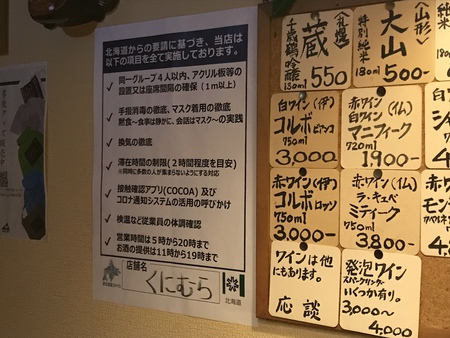 北海道からの要請に基づき、当店は
以下の項目を全て実施しております。
✓ 同一グループ4人以内、アクリル板等の
設置又は座席間隔の確保（1m以上）
✓ 手指消毒の徹底、マスク着用の徹底
黙食～食事は静かに、会話はマスク～の実践
✓ 換気の徹底
✓ 滞在時間の制限（2時間程度を目安）
※同時に多数の人が集まらないようにする対応
✓ 接触確認アプリ（COCOA）及び
コロナ通知システムの活用の呼びかけ
✓ 検温など従業員の体調確認
✓ 営業時間は5時から20時まで
お酒の提供は11時から19時まで
店舗名
くにむら
北海道
(札幌)
蔵
千歳鶴吟醸
180ml 550
(山形)
大山
特別純米
180ml 500-
白ワイン(伊)
コルボビアンコ
750ml
3,000
赤ワイン(仏)
白ワイン
マニフィーク
720ml
1900-
白ワイ
赤ワイン(伊)
コルボロッソ
750ml
3,000-
赤ワイン(仏)
ラ・キュベ
ミティーク
750ml
3,800-
赤ワ
モン
ワインは他
にもあります。
応談
発泡ワイン
スパークリングワイン
いくつか有り。
3,000～
4,000